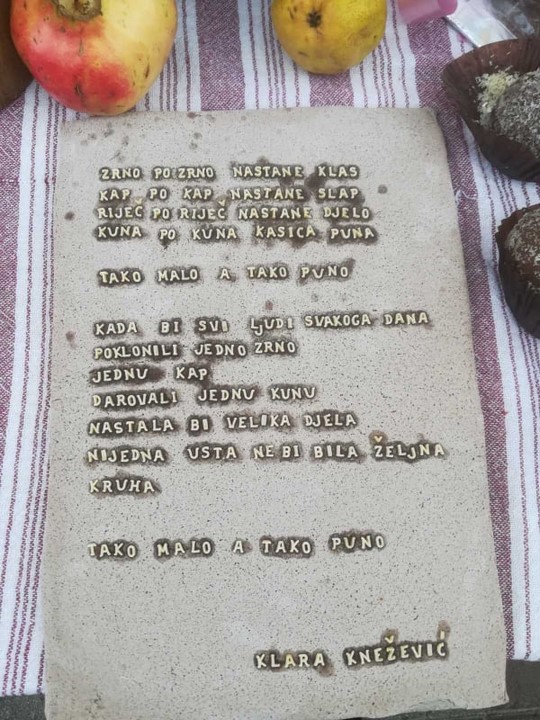 ZRNO PO ZRNO NASTANE KLAS
KAP PO KAP NASTANE SLAP
RIJEČ PO RIJEČ NASTANE DJELO
KUNA PO KUNA KASICA PUNA
TAKO MALO A TAKO PUNO
KADA BI SVI LJUDI SVAKOGA DANA
POKLONILI JEDNO ZRNO
JEDNU KAP
DAROVALI JEDNU KUNU
NASTALA BI VELIKA DJELA
NIJEDNA USTA NE BI BILA ŽELJNA
KRUHA
TAKO MALO A TAKO PUNO
KLARA KNEŽEVIĆ